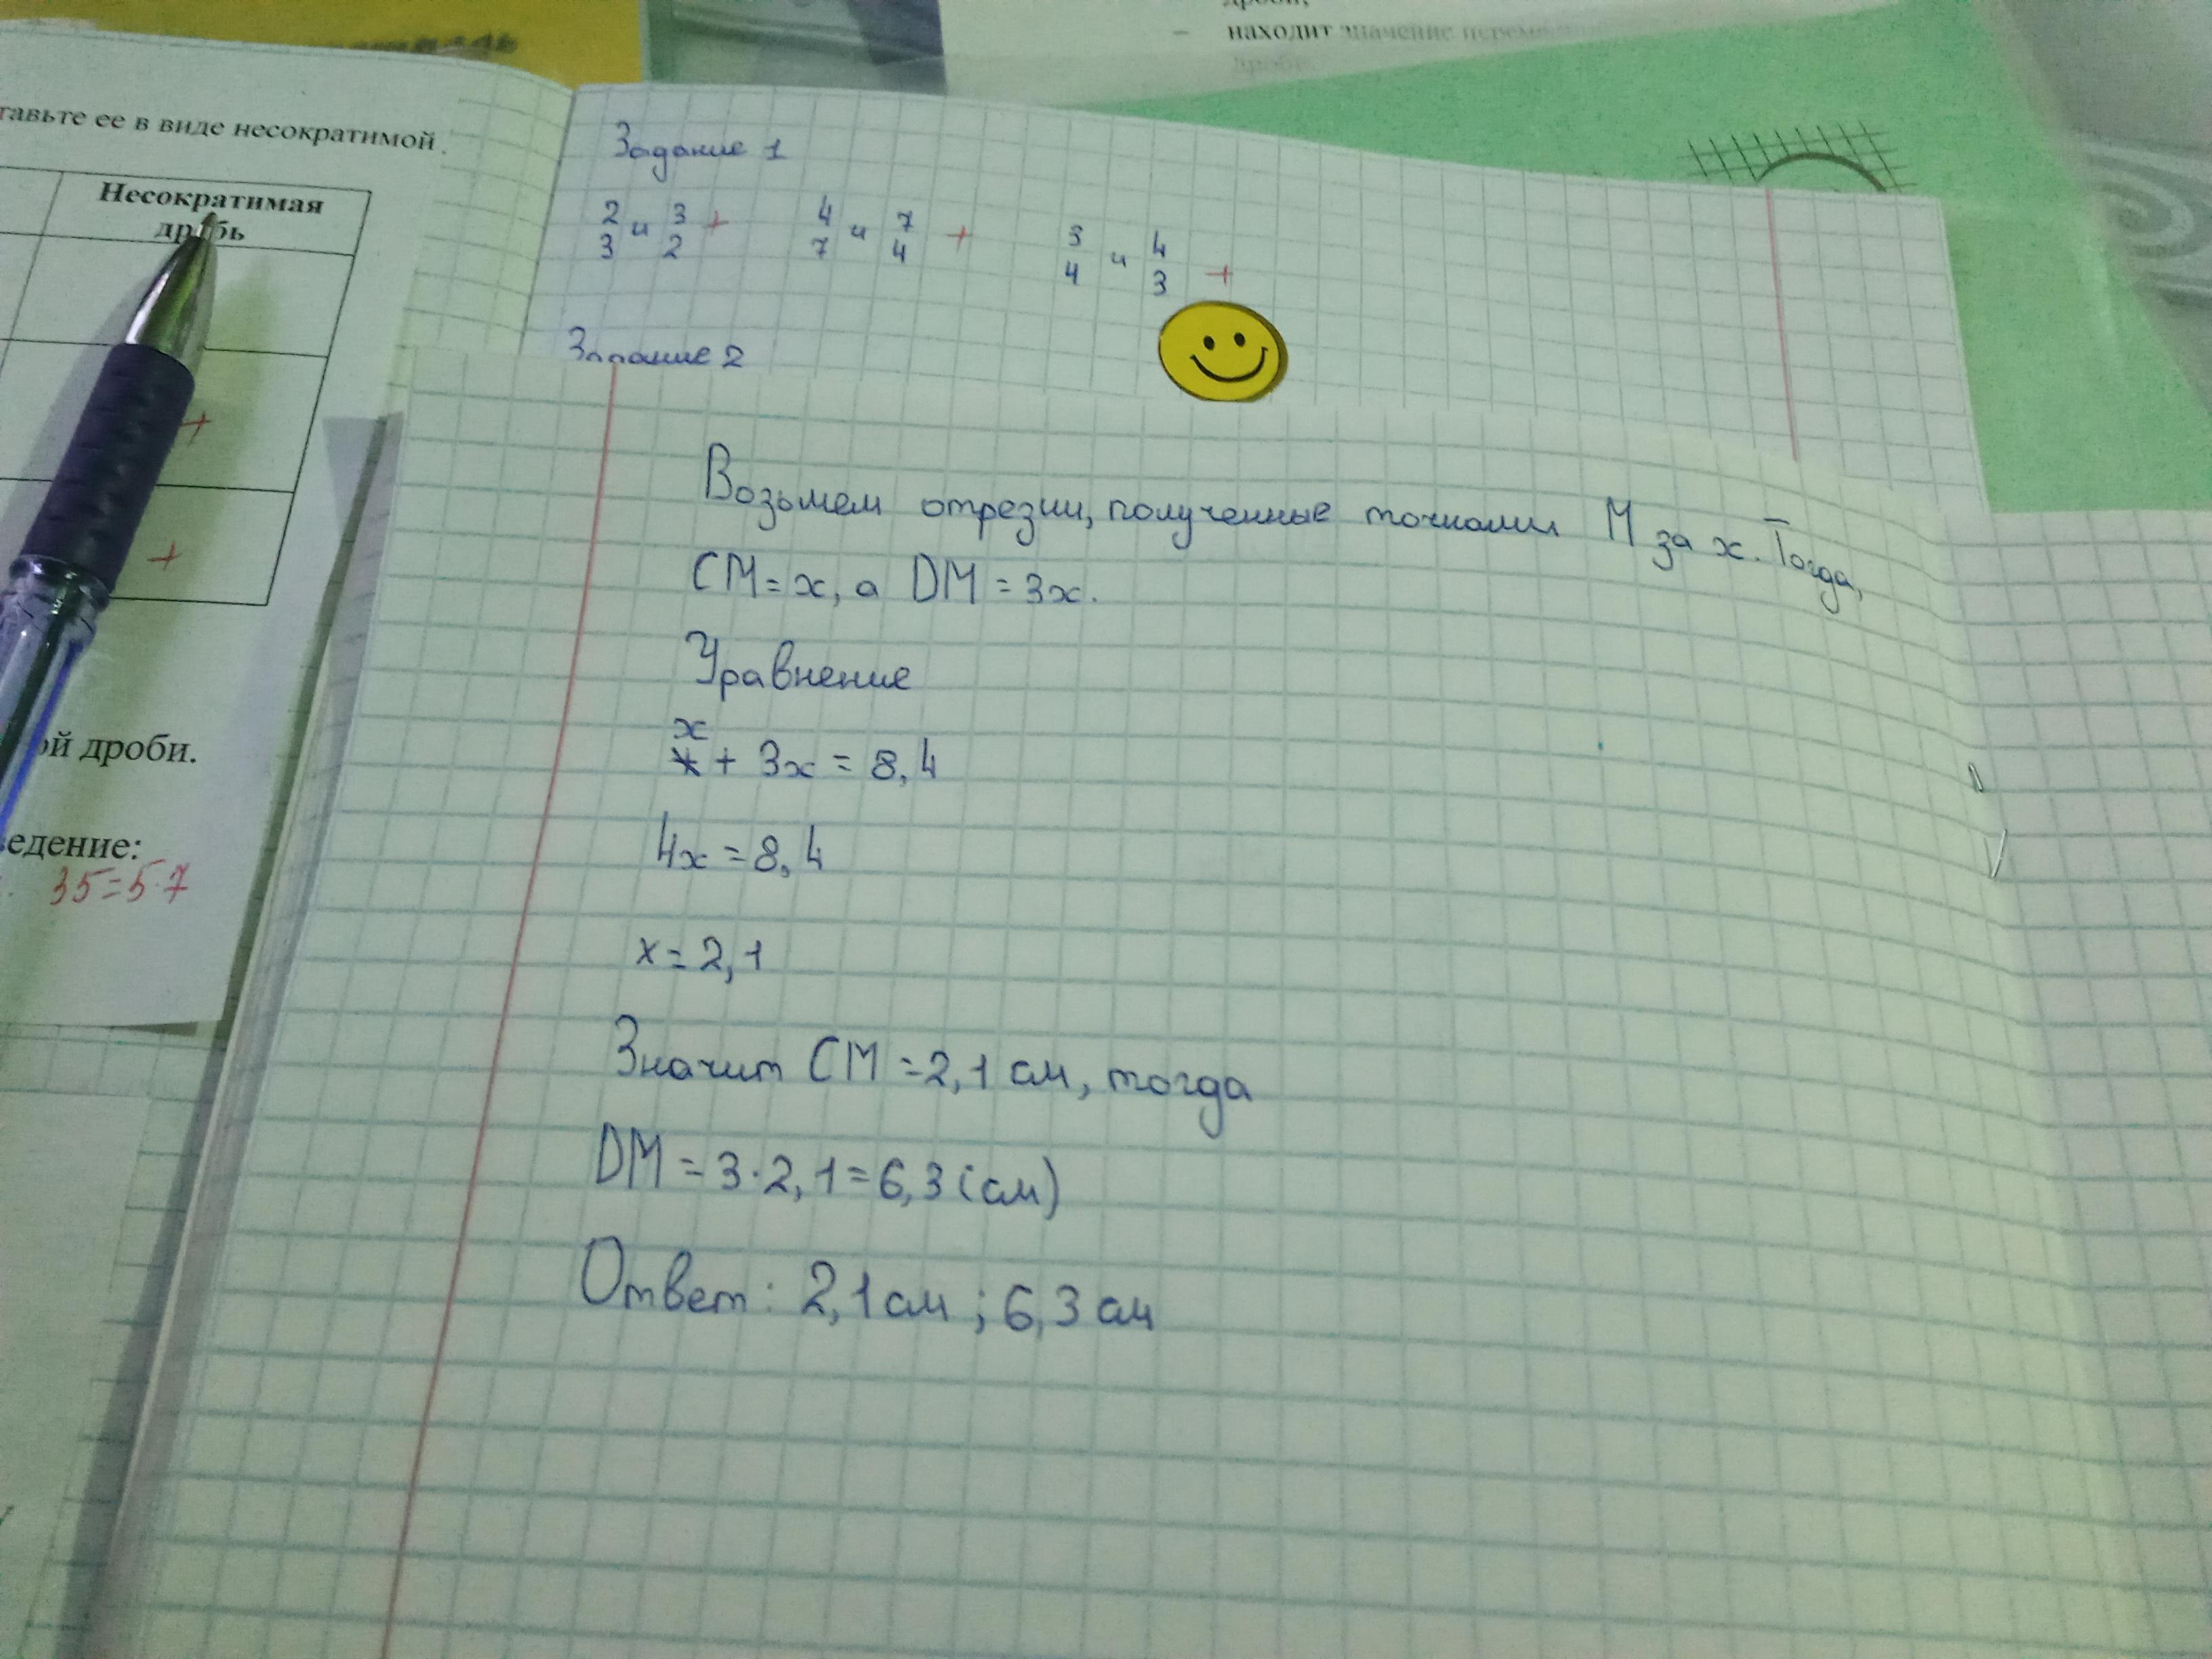 находит значение
тавьте ее в виде несократимой
Несократимая
дробь
+
+
ой дроби.
ведение:
35=5·7
Задание 1
2/3 и 3/2 + 4/7 и 7/4 + 3/4 и 4/3 +
Задание 2
Возьмем отрезки, полученные точками М за x. Тогда,
CM = x, а DM = 3x.
Уравнение
x
+ 3x = 8,4
4x = 8,4
x = 2,1
Значит CM = 2,1 см, тогда
DM = 3·2,1 = 6,3 (см)
Ответ: 2,1 см ; 6,3 см